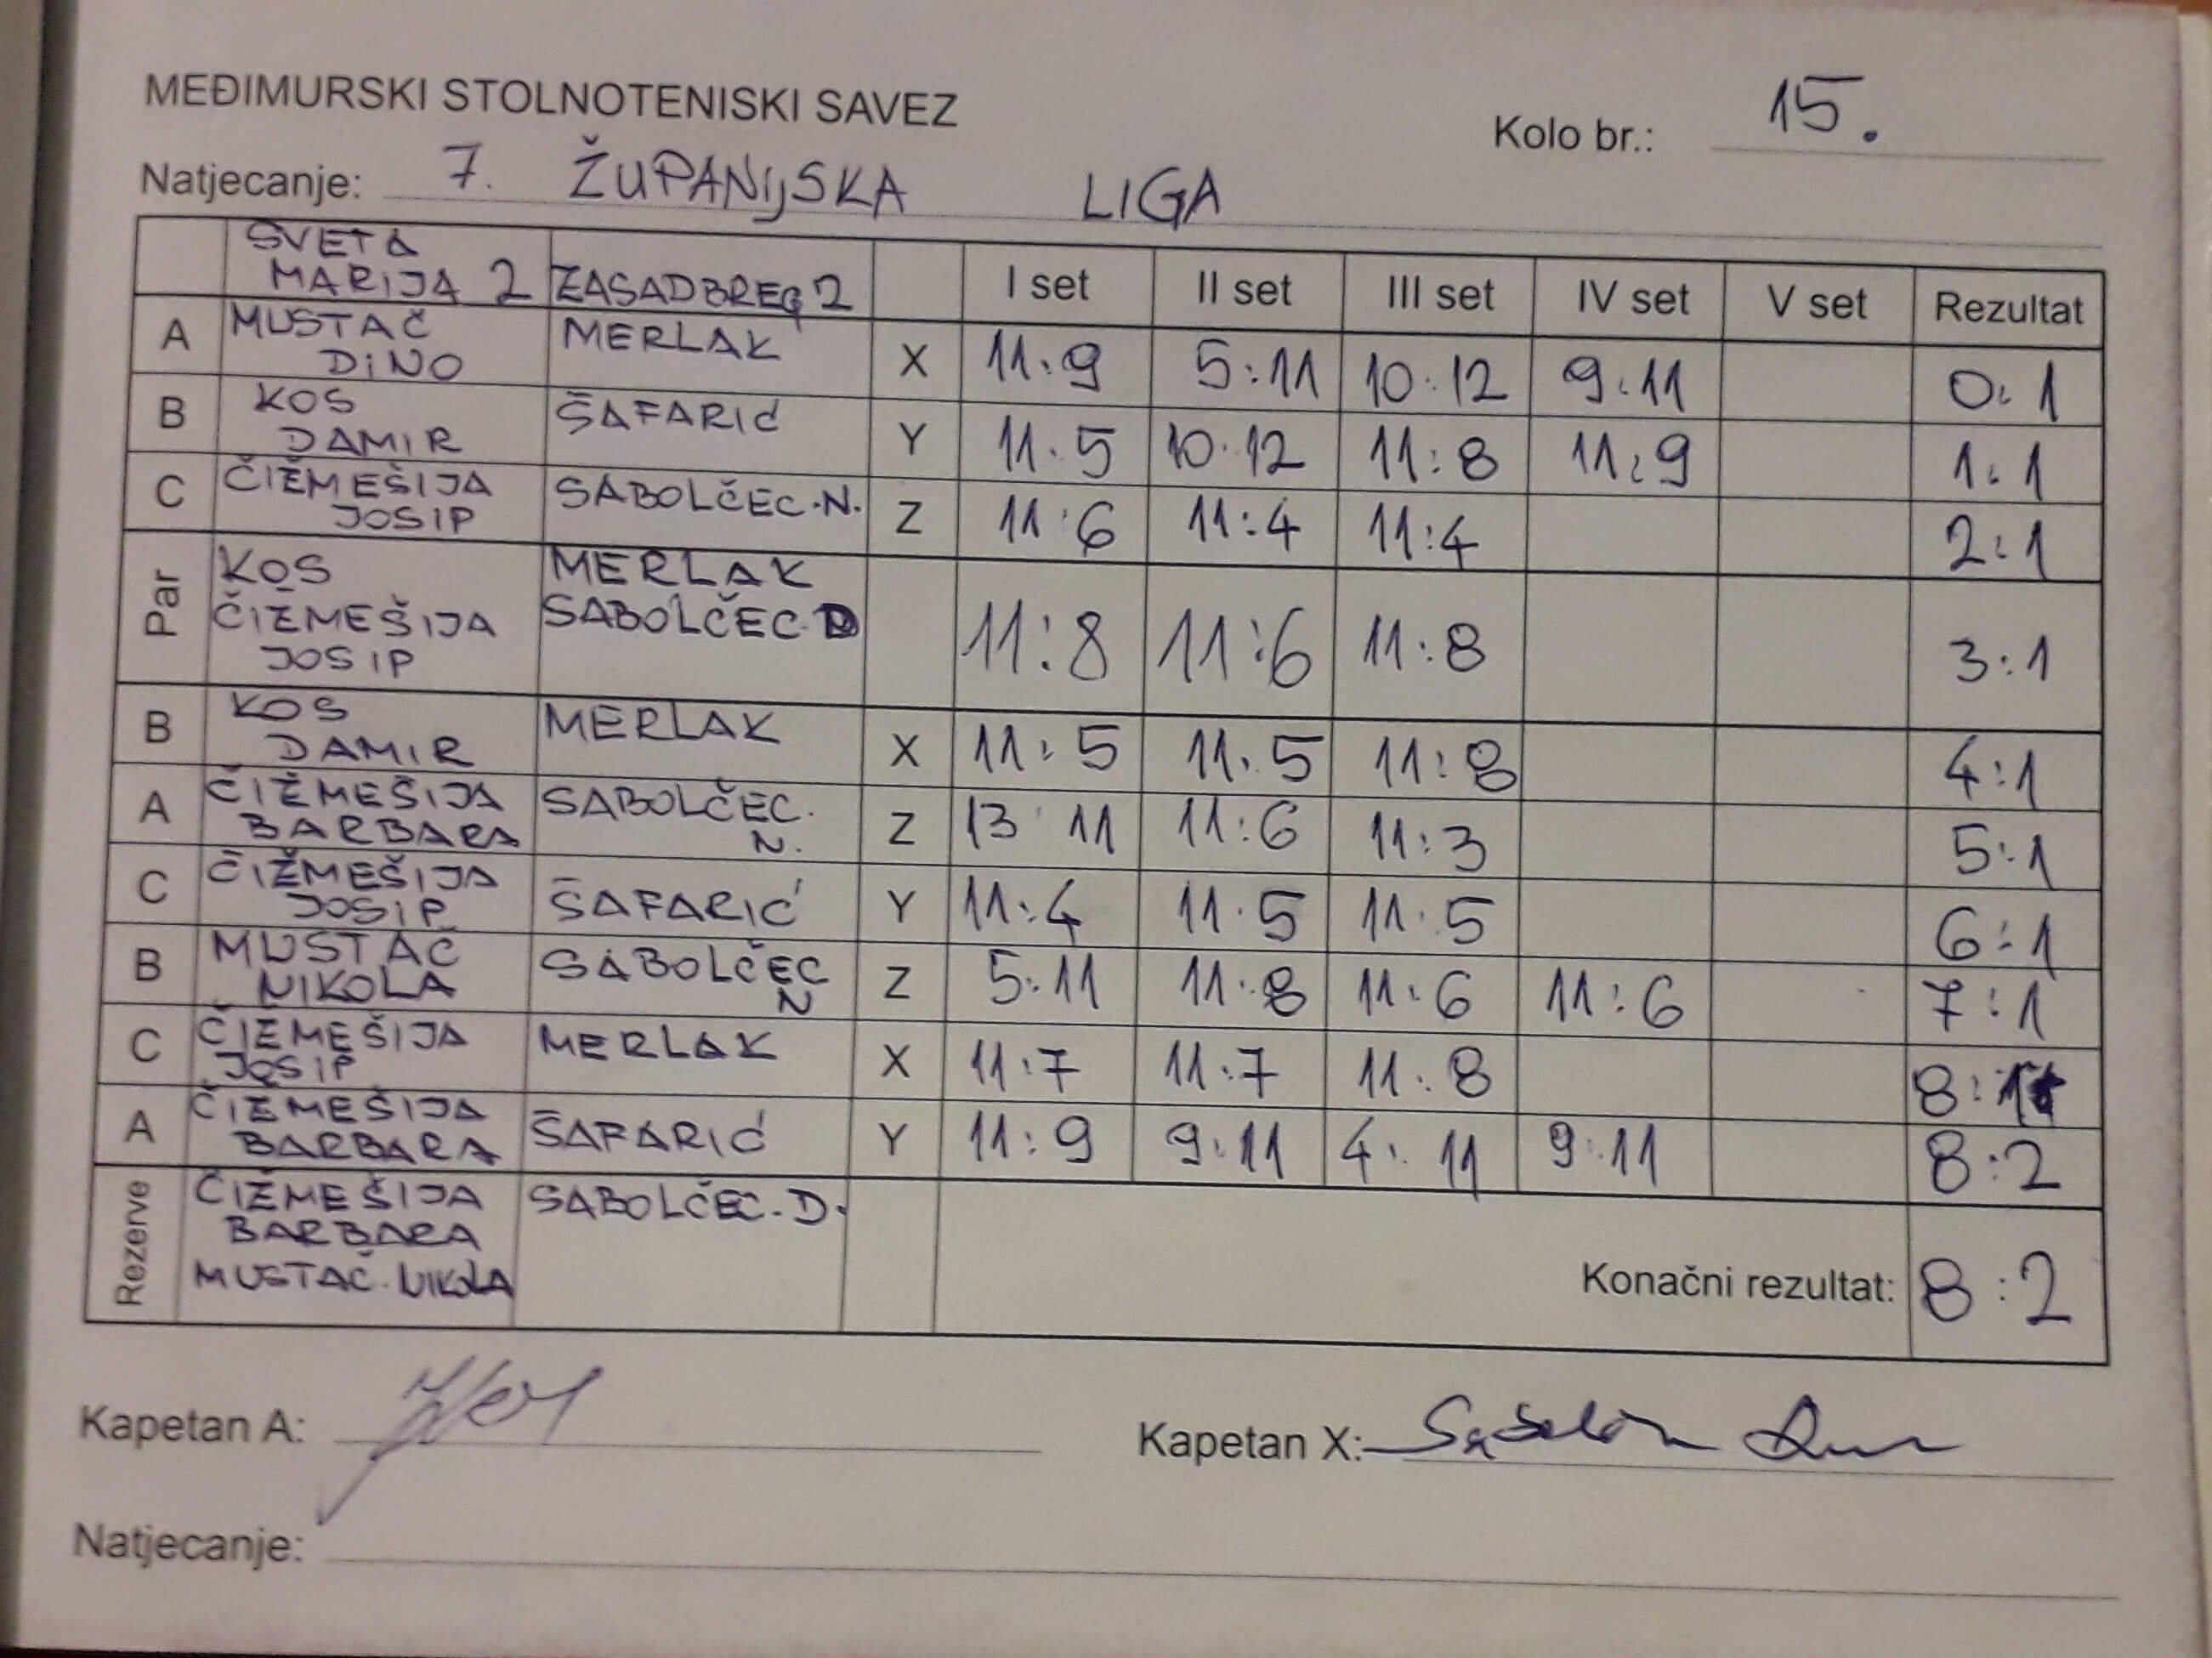 MEĐIMURSKI STOLNOTENISKI SAVEZ
Kolo br.: 15.
Natjecanje: 7. ŽUPANIJSKA LIGA
SVETA MARIJA 2 ZASADBREG 2 I set II set III set IV set V set Rezultat
A MUSTAČ DINO MERLAK X 11:9 5:11 10:12 9:11 0:1
B KOS DAMIR ŠAFARIĆ Y 11:5 10:12 11:8 11:9 1:1
C ČIŽMEŠIJA JOSIP SABOLČEC.N. Z 11:6 11:4 11:4 2:1
Par KOS ČIŽMEŠIJA JOSIP MERLAK SABOLČEC D 11:8 11:6 11:8 3:1
B KOS DAMIR MERLAK X 11:5 11:5 11:8 4:1
A ČIŽMEŠIJA BARBARA SABOLČEC. N. Z 13:11 11:6 11:3 5:1
C ČIŽMEŠIJA JOSIP ŠAFARIĆ Y 11:4 11:5 11:5 6:1
B MUSTAČ NIKOLA SABOLČEC N Z 5:11 11:8 11:6 11:6 7:1
C ČIŽMEŠIJA JOSIP MERLAK X 11:7 11:7 11:8 8:1
A ČIŽMEŠIJA BARBARA ŠAFARIĆ Y 11:9 9:11 4:11 9:11 8:2
Rezerve ČIŽMEŠIJA BARBARA MUSTAČ.NIKOLA SABOLČEC.D. Konačni rezultat: 8:2
Kapetan A: Kapetan X:
Natjecanje: